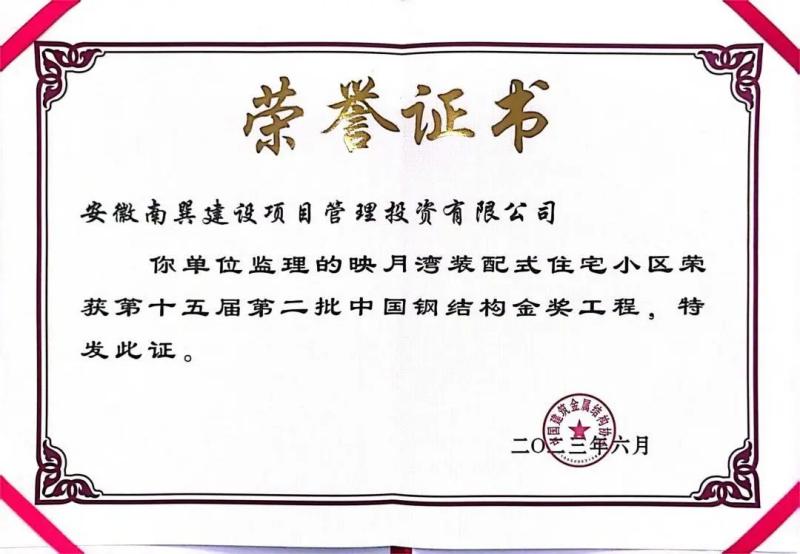 荣誉证书
安徽南巽建设项目管理投资有限公司
你单位监理的映月湾装配式住宅小区荣
获第十五届第二批中国钢结构金奖工程，特
发此证。
中国建筑金属结构协会
二〇二三年六月